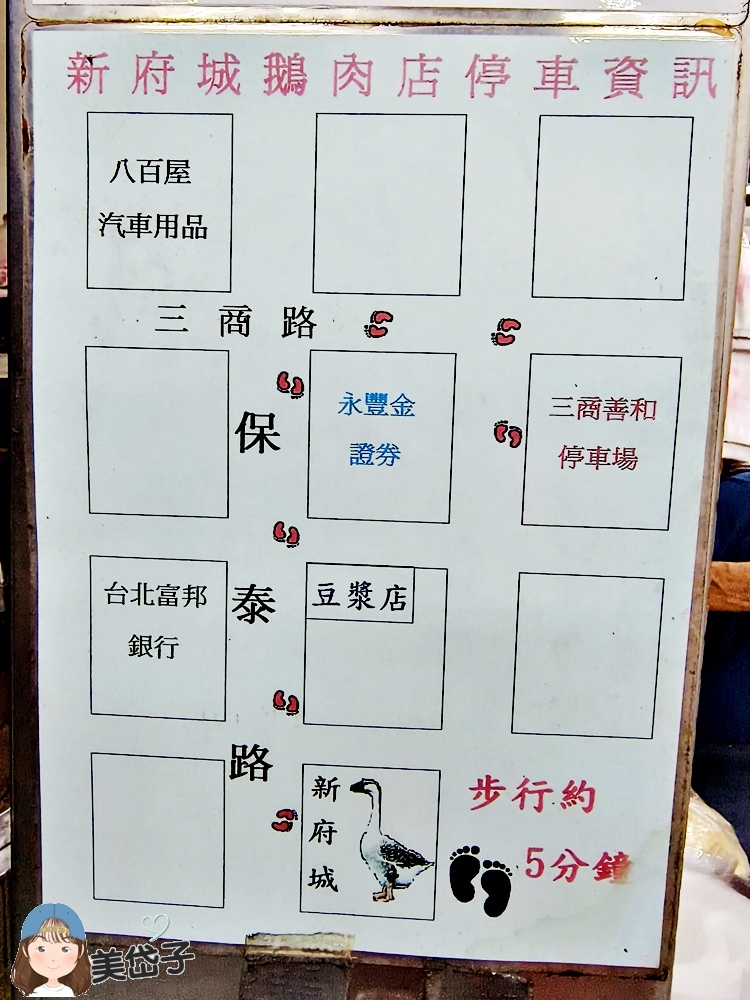 新府城鵝肉店停車資訊
八百屋
汽車用品
三商路
保泰路
永豐金
證券
三商善和
停車場
台北富邦
銀行
豆漿店
新府城
步行約
5分鐘
美岱子